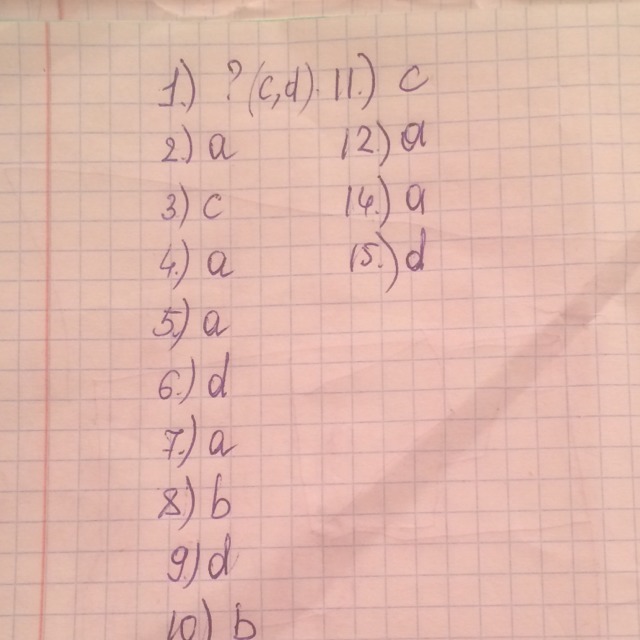 1) ? (c,d).
2.) a
3) c
4.) a
5) a
6.) d
7.) a
8) b
9) d
10) b
11.) c
12.) a
14.) a
15.) d